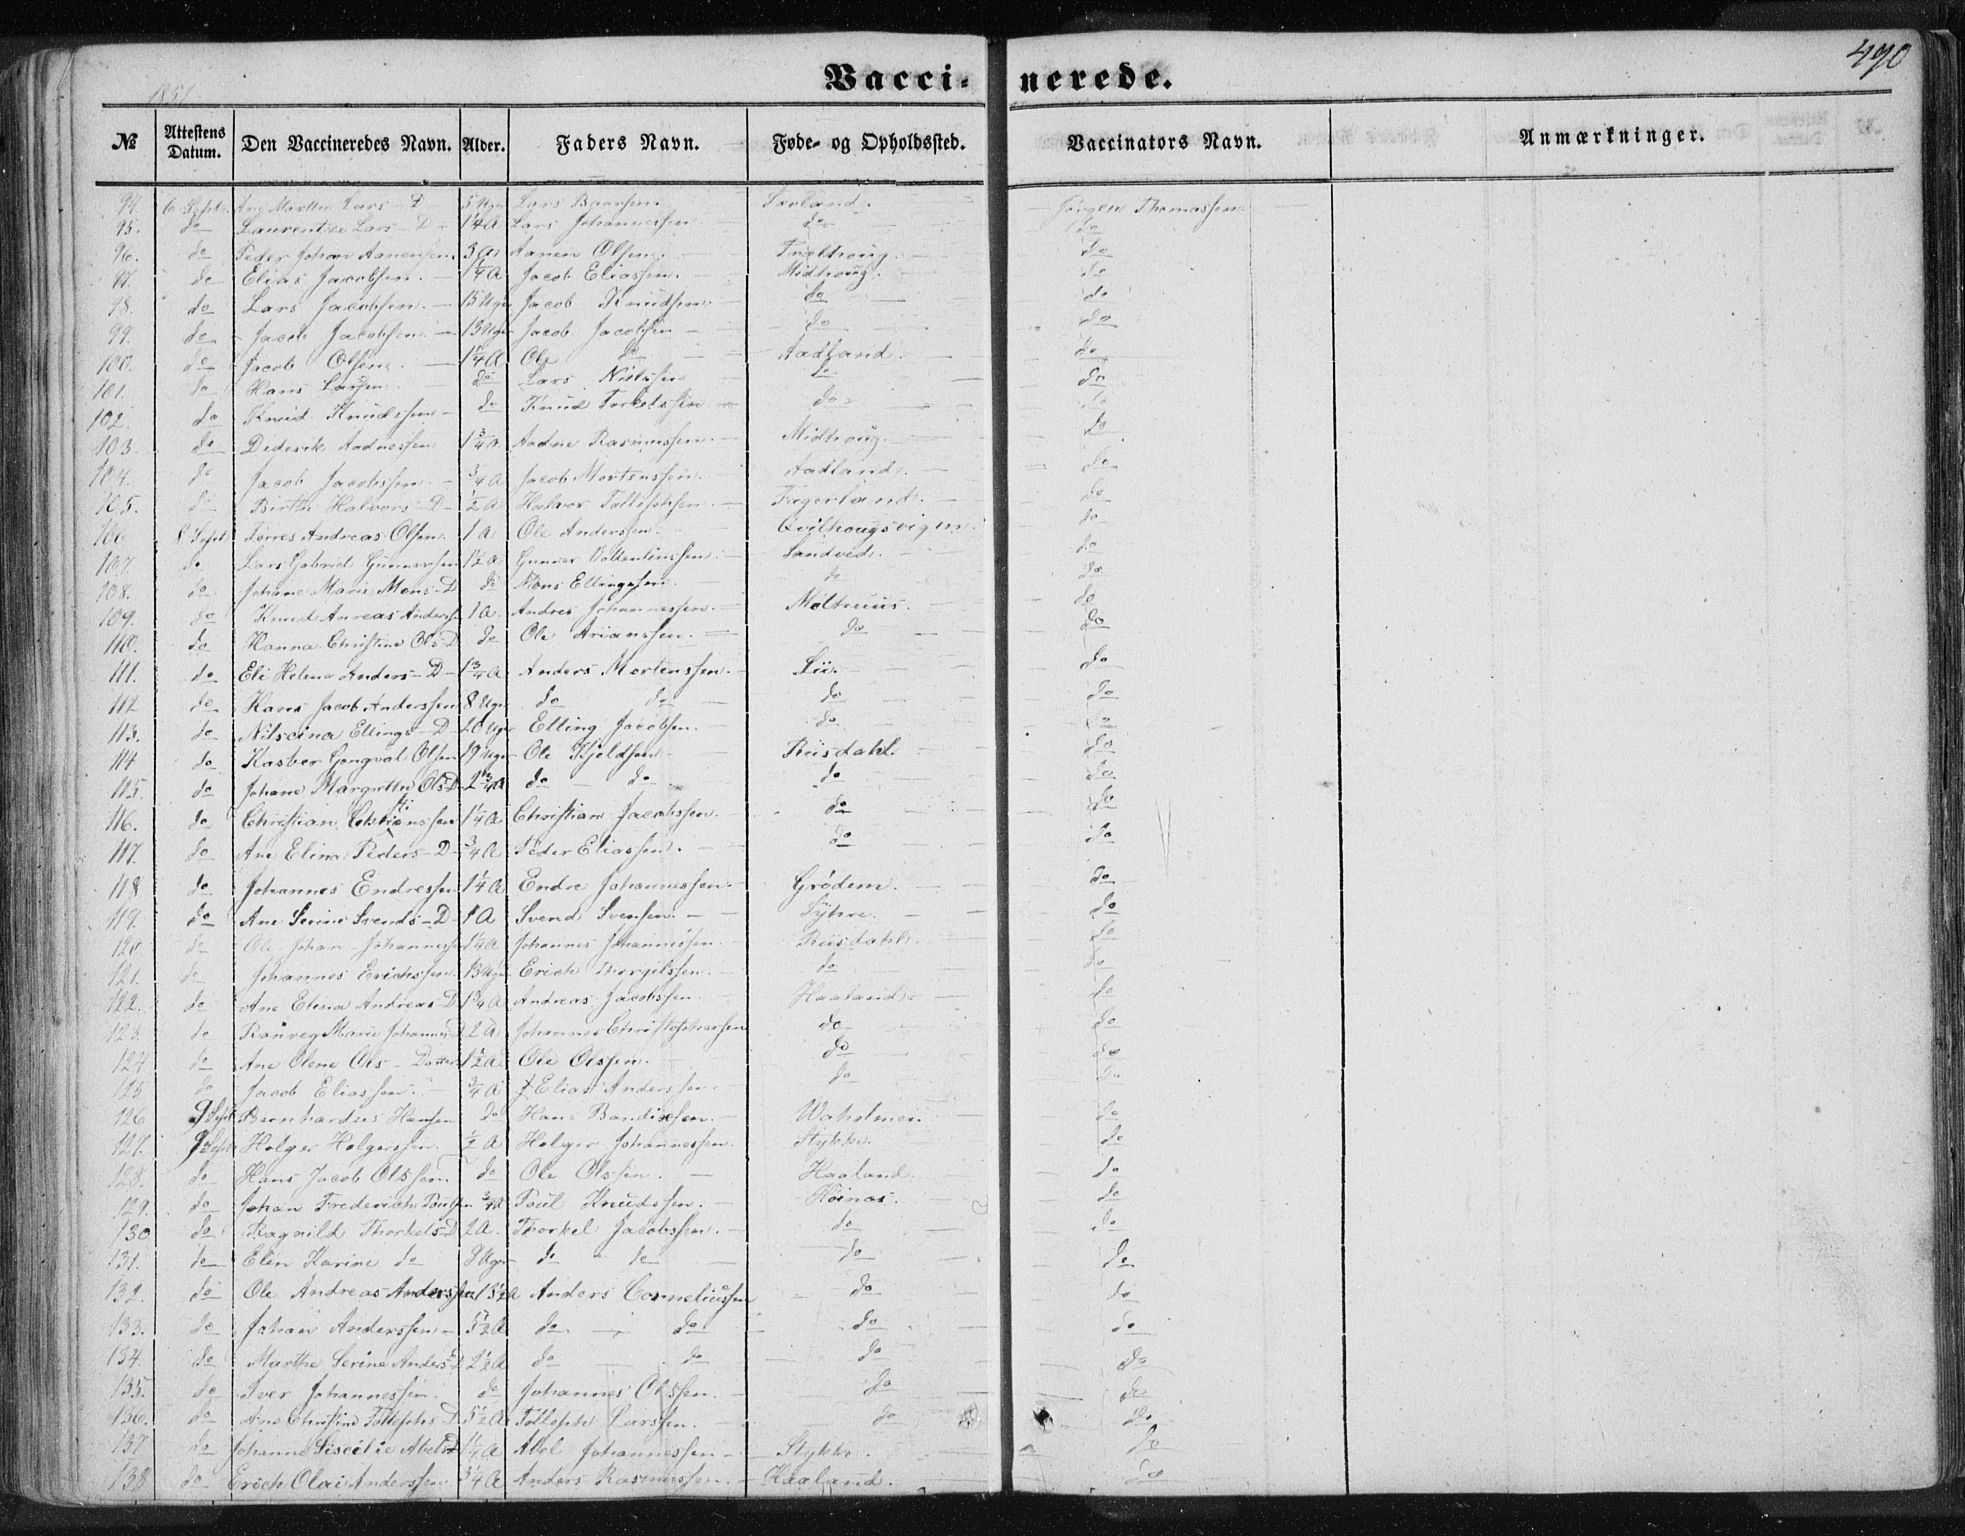 490
Vacci- nerede.
1851
№ Attestens Datum. Den Vaccineredes Navn. Alder. Faders Navn. Føde- og Opholdssted. Vaccinators Navn. Anmærkninger.
94. 6 Sept. Ane Marthe Lars-D 5 Uger Lars Jørgen Thomassen
95. do Laurentze Lars-D 1/4 A Lars Johannessen do do
96. do Peder Johan Aanensen 3 A Aanen Olsen do
97. do Elias Jacobsen 1/4 A Jacob Eliassen. Midthoug do
98. do Lars Jacobsen 15 Uger Jacob Knudsen do do
99. do Jacob Jacobsen 13 Uger Jacob Jacobsen do do
100. do Jacob Olsen 1 1/4 A Ole do Aadland do
101. do Hans Larsen do Lars Nielssen do do
102. do Knud Knudssen do Knud Torkelssen do do
103. do Diderik Aadnessen 1 3/4 A Aadne Rasmussen Midthoug do
104. do Jacob Jacobssen 3/4 A Jacob Mortenssen Aadland do
105. do Birthe Halvors-D 1/2 A Halvor Tollefssen Fagerland do
106 8 Sept Torres Andreas Olsen 1 A Ole Anderssen Qvilhougsvigen do
107. do Lars Gabriel Gunnersen 1 1/2 A Gunner Vallentinssen Sandved do
108. do Johane Marie Mons-D do Mons Ellingssen do do
109. do Knud Anreas Anderss 1 A Andres Johannessen Molthuus do
110. do Hanna Christine Ols-D do Ole Arianssen do do
111. do Eli Helene Anders-D 1 3/4 A Anders Mortenssen Lii do
112 do Hans Jacob Anderssen 8 Uger do do do do
113. do Nilseina Ellings-D 20 Uger Elling Jacobsen do do
114 do Kasber Gongval Olsen 19 Uger Ole Kjeldsen Riisdahl do
115. do Johane Margrethe Ols-D 2 3/4 A do do do do
116. do Christian Christianssen 1 1/4 A Christian Jacobssen do do
117. do Ane Elina Peders-D 3/4 A Peder Eliassen. do do
118 do Johannes Endressen 1 1/4 A Endre Johannessen Grødem do
119. do Ane Serine Svends-D 1 A Svend Svensen do
120 do Ole Johan Johannessen 1 1/4 A Johannes Johannessen Riisdahl do
121. do Johannes Erichssen 13 Uger Erich Thorgilssen do do
122. do Ane Elina Andreas D 1 3/4 A Andreas Jacobssen Haaland do
123. do Ranveg Marie Johannes D 2 A Johannes Christophersen do do
124 do Ane Olene Ols-Datter 1 1/2 A Ole Olssen do do
125 do Jacob Eliassen 3/4 A Elias Anderssen do do
126 9 Sept Bernhardus Hansen do Hans Bendixsen do
127. 9 Sept Holger Holgerssen 1/2 A Holger Johannessen Stykke do
128. do Hans Jacob Olssen do Ole Olssen Haaland do
129. do Johan Frederich Poulssen 3/4 A Poul Knudssen do
130 do Ragnild Thorkels-D 2 A Thorkel Jacobssen do do
131. do Elen Karine do 8 Uger do do do do
132. do Ole Andreas Anderssen Anders Corneliussen do do
133. do Johan Anderssen 5 1/2 A do do do do
134. do Marthe Serine Anders D 2 1/2 A do do do do
135. do Iver Johannessen do Johannes Olssen do do
136. do Ane Christine Tollephs D 5 1/2 A Tolleph Larssen do do
137. do Johanne Siscilie Abels D 1 1/4 A Abel Johannessen Stykke do
138 do Erich Olai Anderssen 3 1/4 A Anders Rasmussen Haaland do